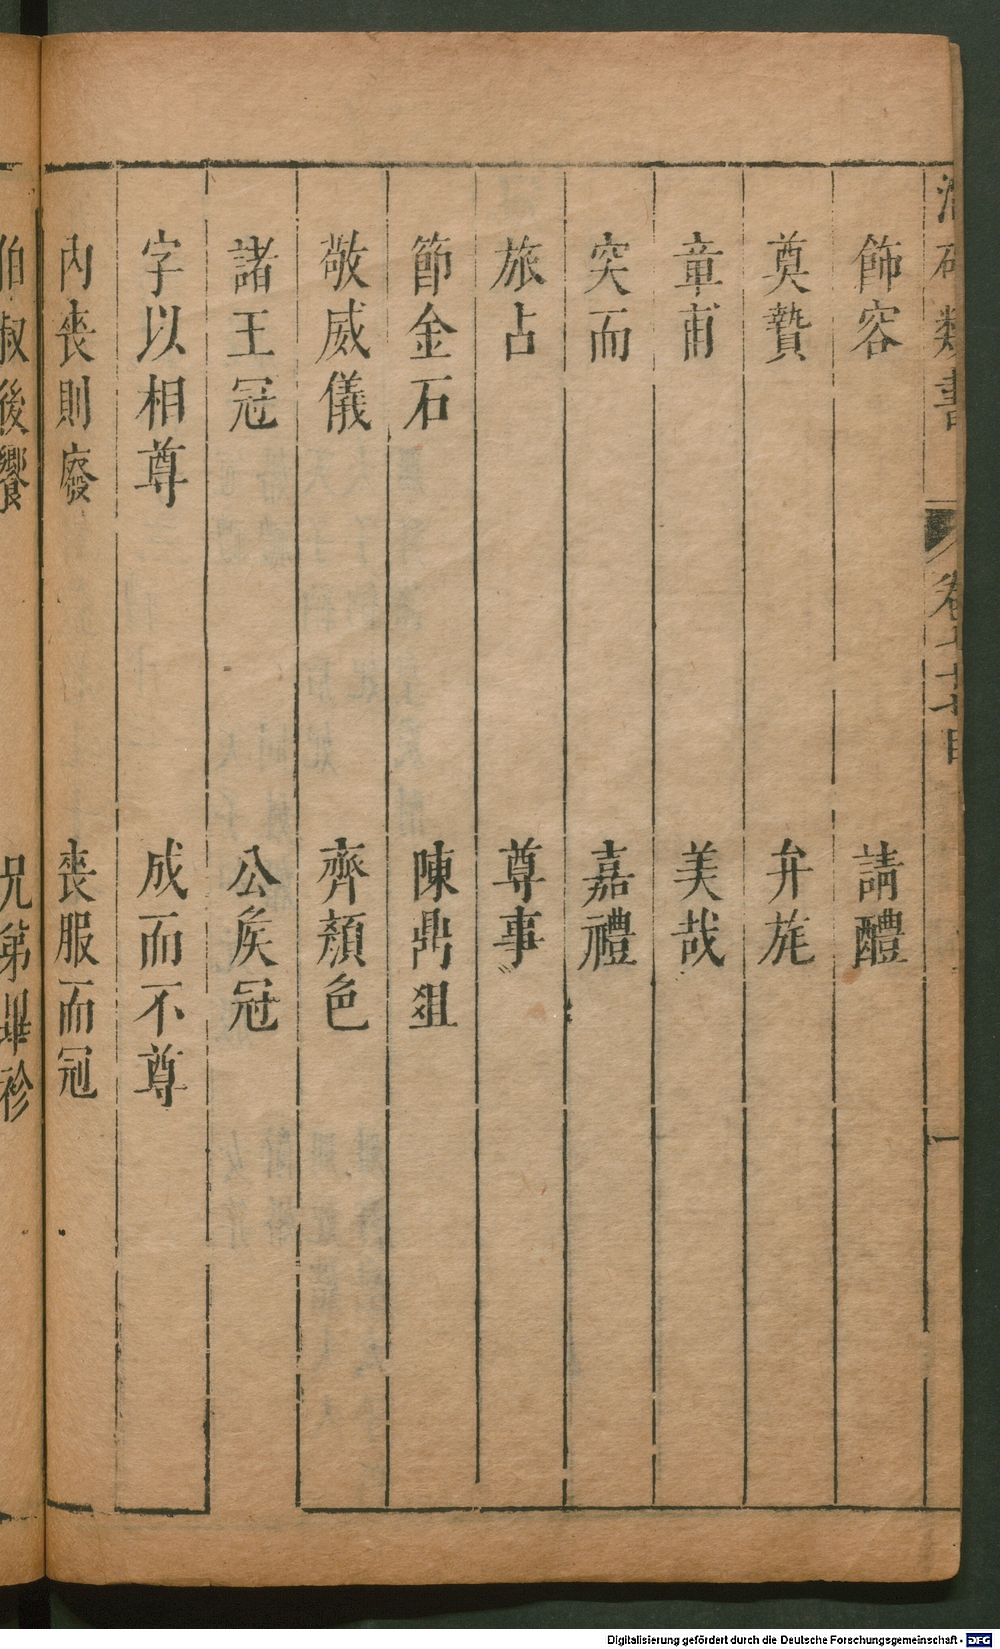 類書
卷七十七目
一
飾容　請醴
奠贄　弁旄
章甫　美哉
突而　嘉禮
旅占　尊事
節金石　陳鼎俎
敬威儀　齊顏色
諸王冠　公矦冠
字以相尊　成而不尊
內喪則廢　喪服而冠
伯叔後饗　兄弟畢袗
Digitalisierung gefördert durch die Deutsche Forschungsgemeinschaft - DFG